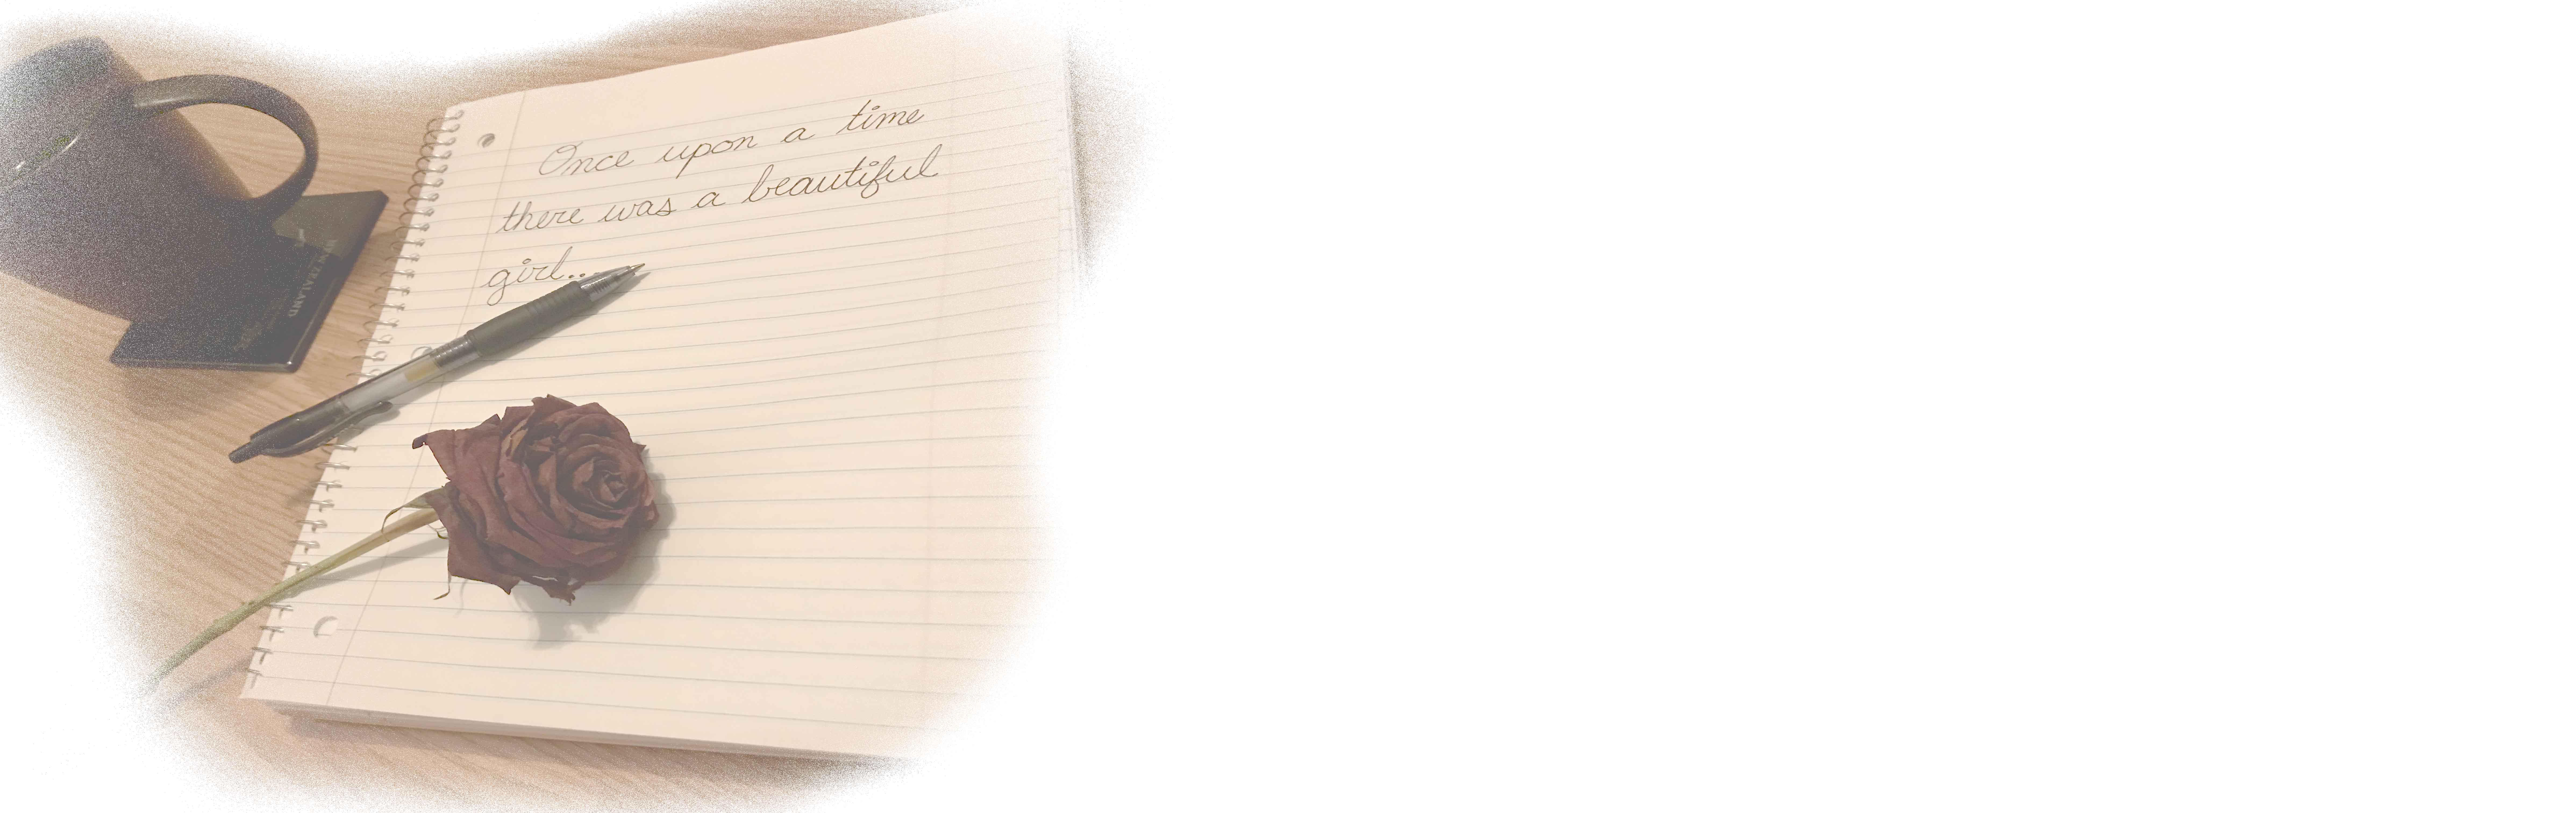 Once upon a time
there was a beautiful
girl...
NEW ZEALAND